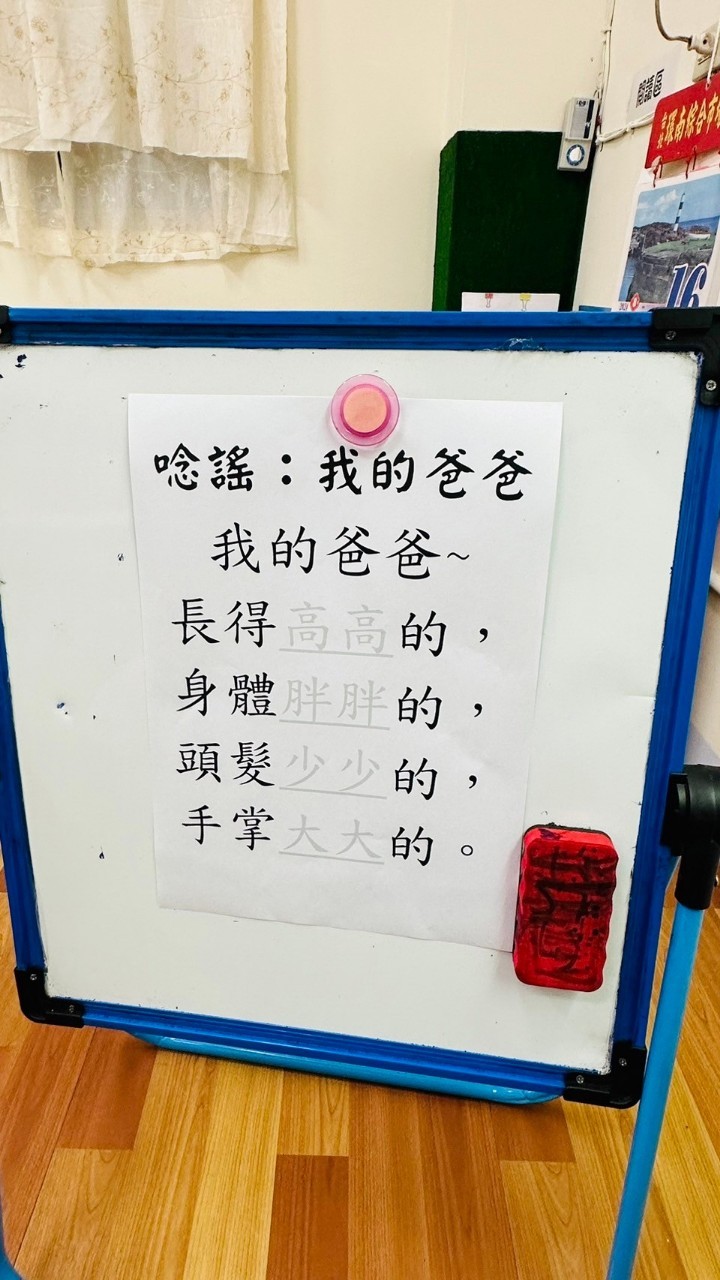 閱讀區
環南綜合市
16
唸謠：我的爸爸
我的爸爸~
長得高高的，
身體胖胖的，
頭髮少少的，
手掌大大的。